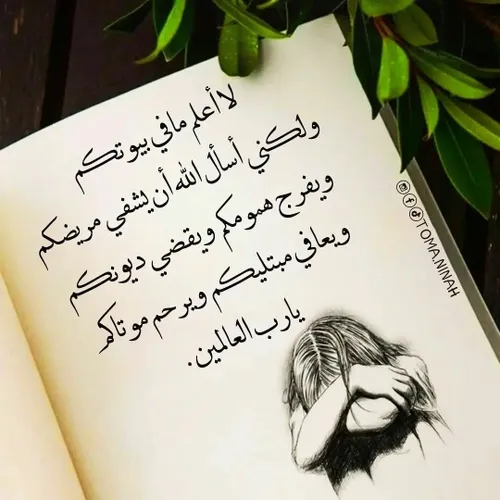 لا أعلم ما في بيوتكم
ولكني أسأل الله أن يشفي مريضكم
ويفرج همومكم ويقضي ديونكم
ويعافي مبتليكم ويرحم موتاكم
يارب العالمين.
TOMA.NINAH